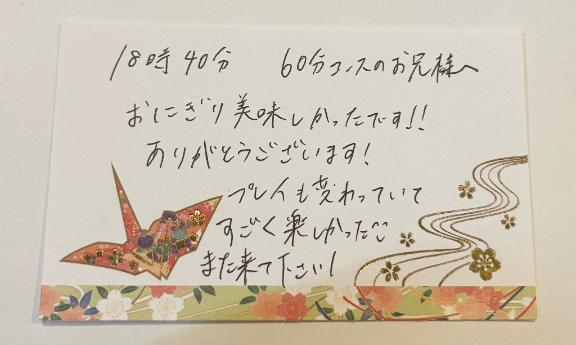 18時40分 60分コースのお兄様へ
おにぎり美味しかったです!!
ありがとうございます!
プレイも変わっていて
すごく楽しかった
また来て下さい!